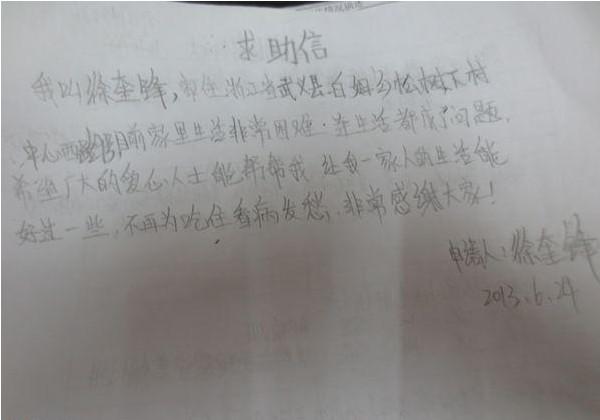 求助信
我叫徐奎锋，家住浙江省武义县白姆乡松树下村
中心西路 目前家里生活非常困难．连生活都成了问题，
希望广大的爱心人士能帮帮我 让我一家人的生活能
好过一些，不再为吃住看病发愁．非常感谢大家！
申请人：徐奎锋
2013.6.24